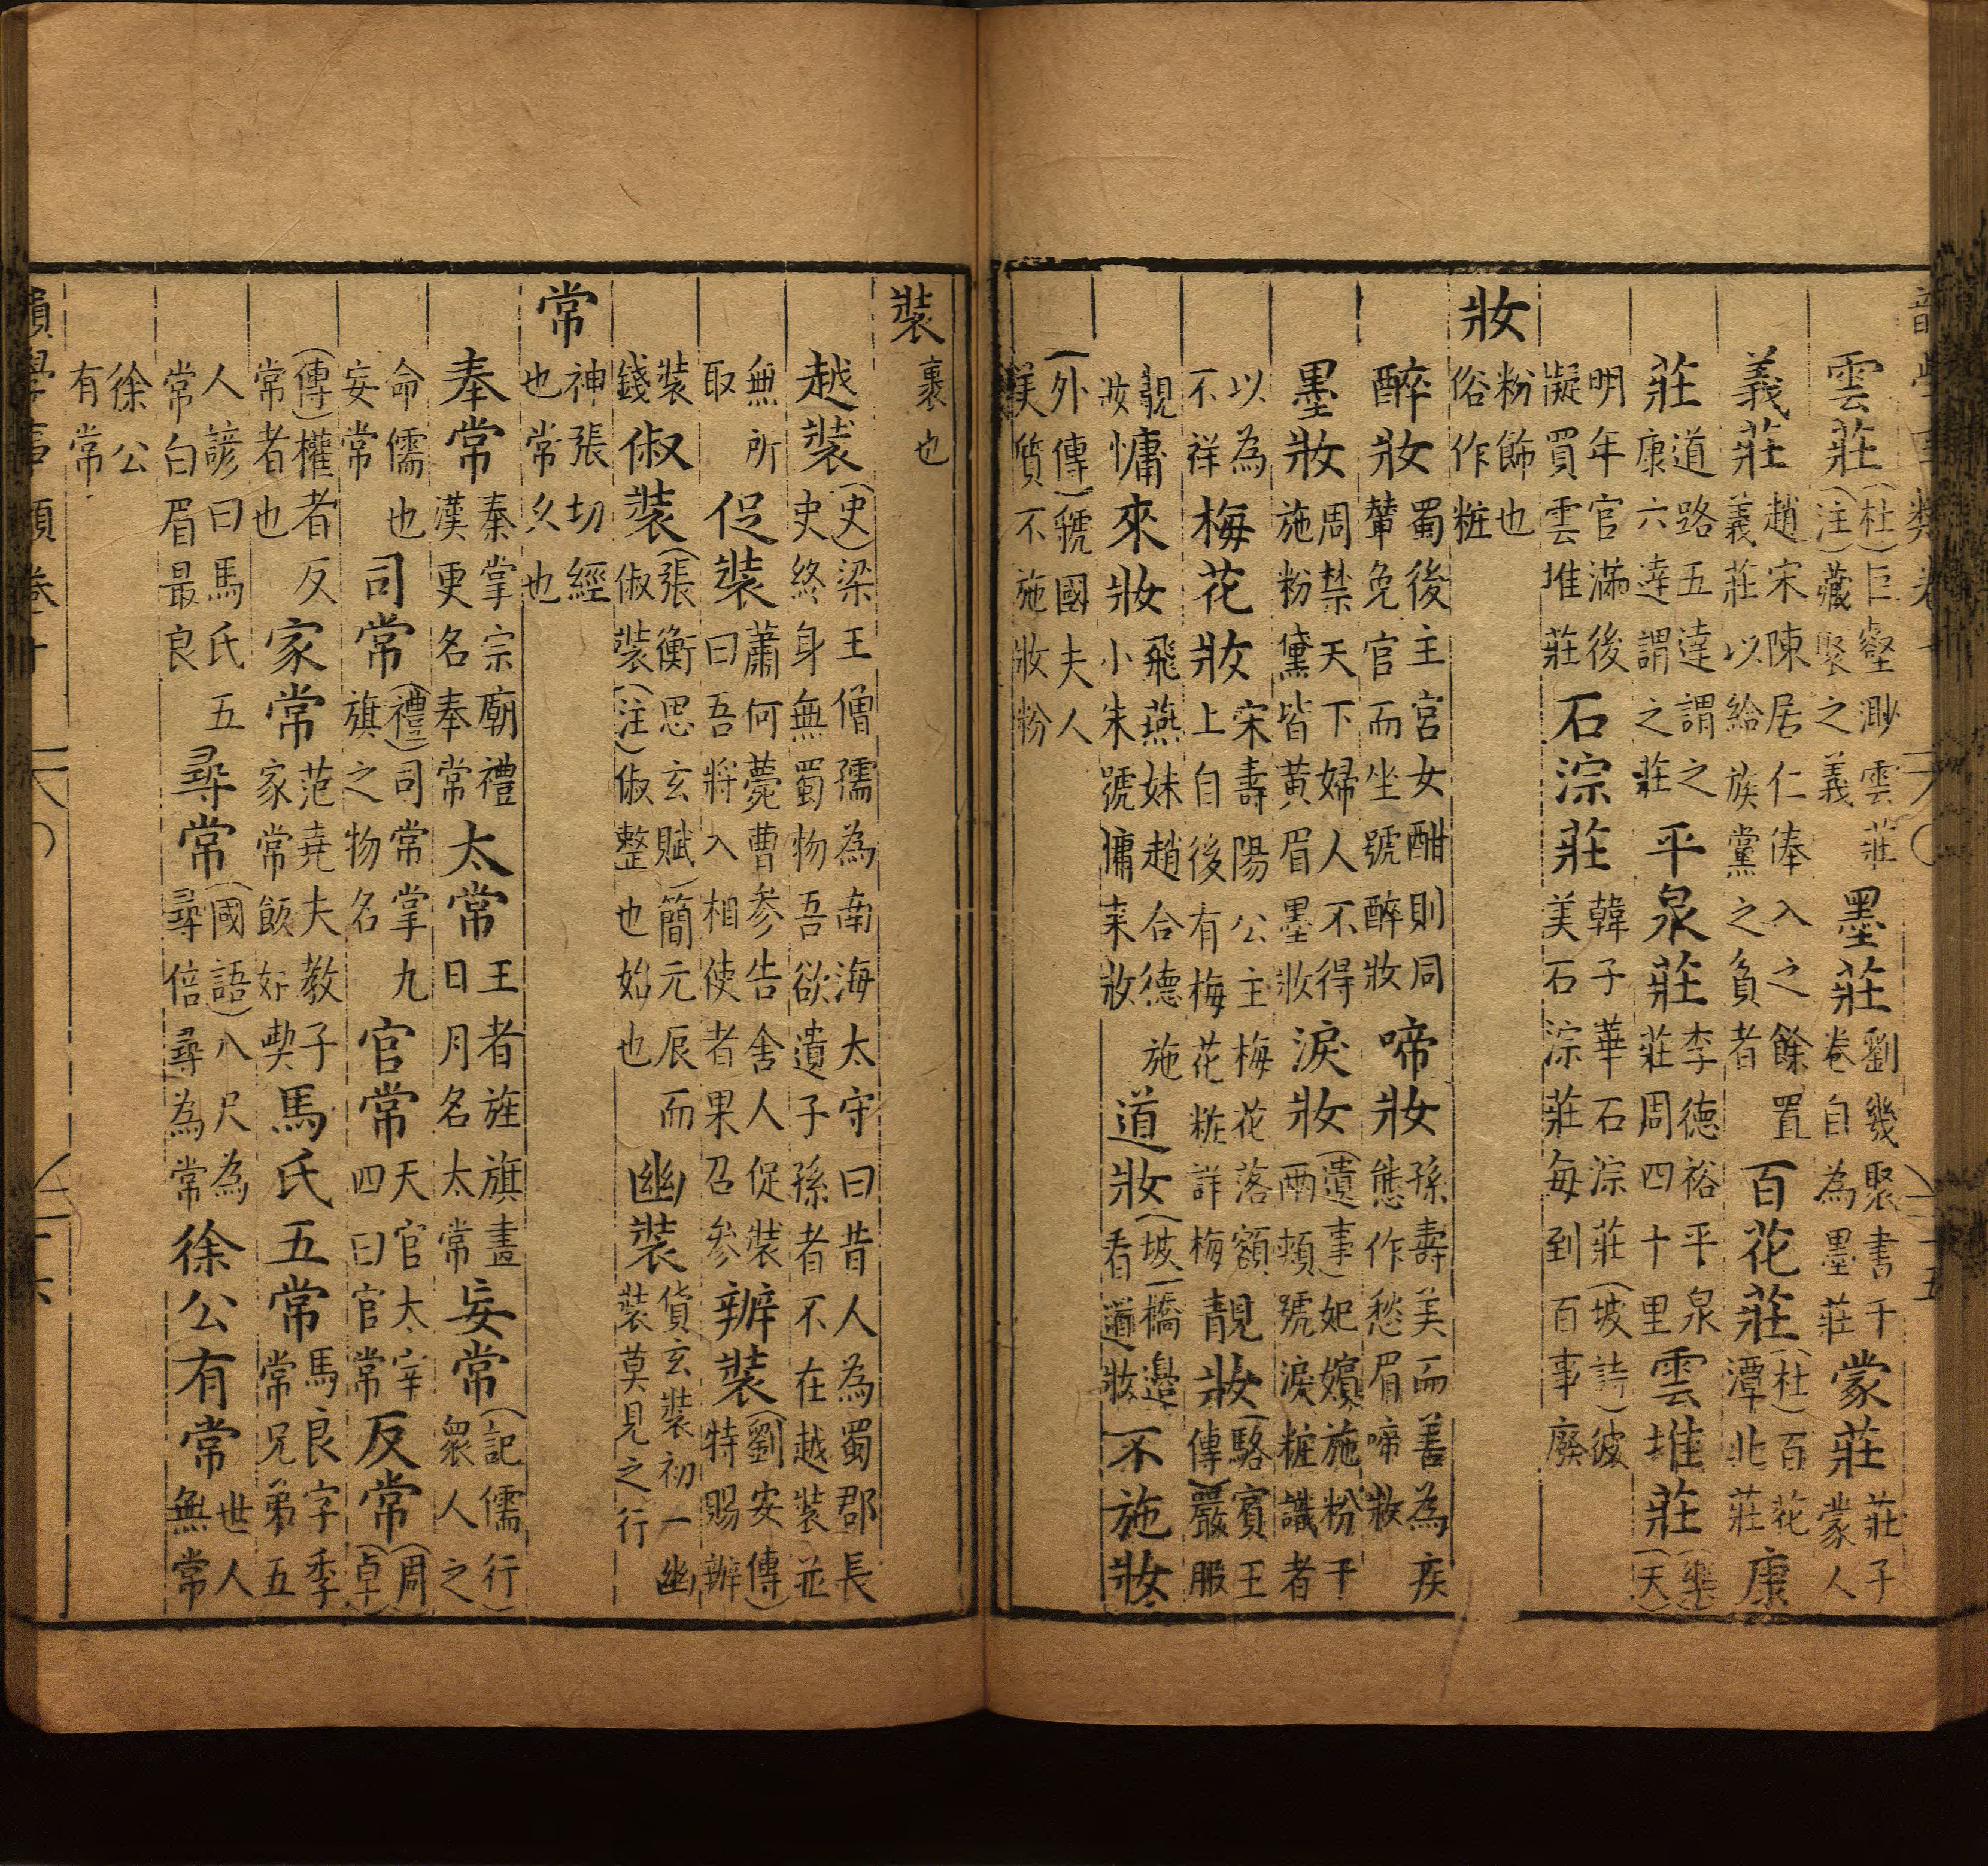 雲莊(杜)巨壑渺雲莊(注)藏聚之義 墨莊劉幾聚書千卷自為墨莊 蒙莊莊子蒙人
義莊趙宋陳居仁俸入之餘置義莊以給族黨之負者 百花莊(杜)百花潭北莊 康
莊道路五達謂之康六達謂之莊 平泉莊李德裕平泉莊周四十里 雲堆莊(樂)(天)
明年官滿後擬買雲堆莊 石淙莊韓子華石淙莊(坡詩)彼美石淙莊每到百事廢
妝 粉飾也俗作粧
醉妝蜀後主宮女酣則同輦免官而坐號醉妝 啼妝孫壽美而善為疾態作愁眉啼妝
墨妝周禁天下婦人不得施粉黛皆黄眉墨妝 淚妝(遺事)妃嬪施粉于兩頰號淚粧識者
以為不祥 梅花妝宋壽陽公主梅花落額上自後有梅花粧詳梅 靚妝(駱賓王傳)嚴服
靚妝 慵來妝飛燕妹趙合德施小朱號慵來妝 道妝(坡)橋邉看道妝 不施妝
(外傳)虢國夫人美質不施妝粉
裝 裹也
越裝(史)梁王僧孺為南海太守曰昔人為蜀郡長史終身無蜀物吾欲遺子孫者不在越裝並
無所取 促裝蕭何薨曹參告舍人促裝曰吾將入相使者果召參 辦裝(劉安傳)特賜辦
裝錢 俶裝(張衡思玄賦)簡元辰而俶裝(注)俶整也始也 幽裝貨玄裝初一幽裝莫見之行
常 神張切經也常久也
奉常秦掌宗廟禮漢更名奉常 太常王者旌旗畫日月名太常 妄常(記儒行)衆人之
命儒也妄常 司常(禮)司常掌九旗之物名 官常天官大宰四曰官常 反常(周)(卓)
(傳)權者反常者也 家常范堯夫教子家常飯好喫 馬氏五常馬良字季常兄弟五
人諺曰馬氏五常白眉最良 尋常(國語)八尺為尋倍尋為常 徐公有常世人無常
徐公有常